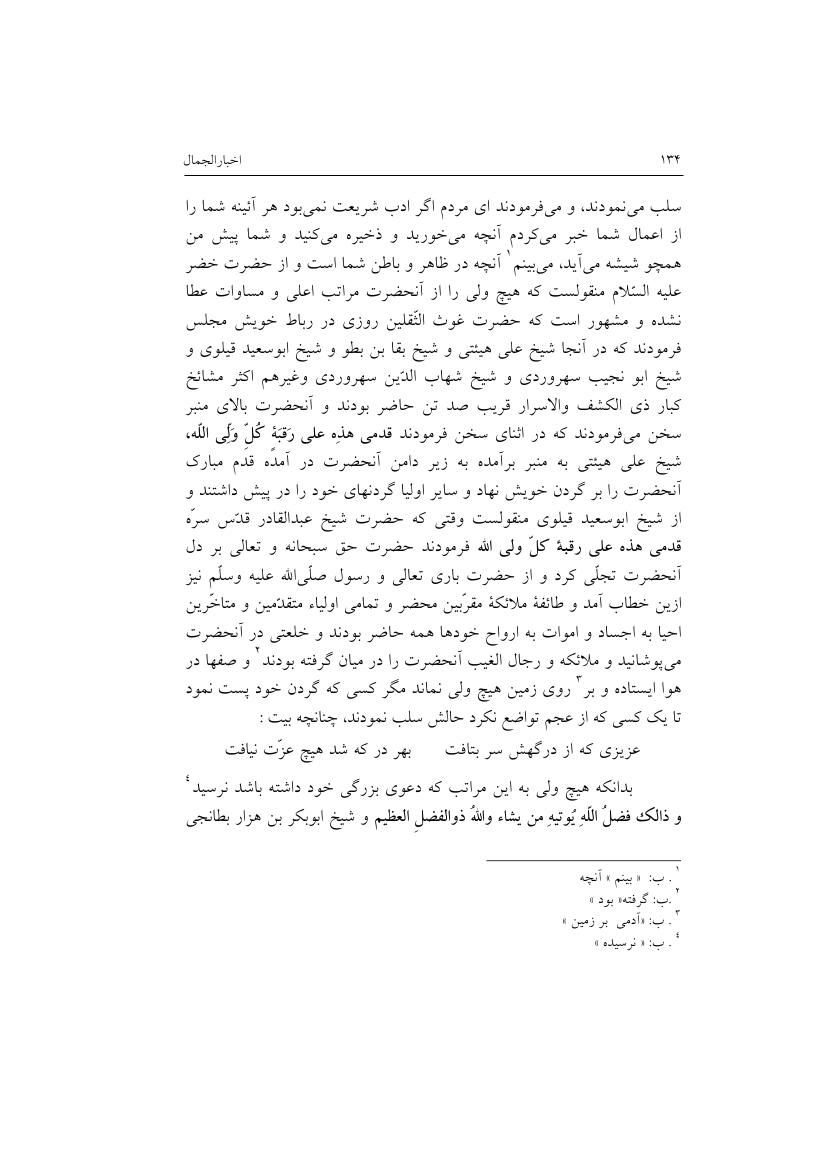 ۱۳۴ اخبارالجمال
سلب می‌نمودند، و می‌فرمودند ای مردم اگر ادب شریعت نمی‌بود هر آئینه شما را
از اعمال شما خبر می‌کردم آنچه می‌خورید و ذخیره می‌کنید و شما پیش من
همچو شیشه می‌آید، می‌بینم۱ آنچه در ظاهر و باطن شما است و از حضرت خضر
علیه السّلام منقولست که هیچ ولی را از آنحضرت مراتب اعلی و مساوات عطا
نشده و مشهور است که حضرت غوث الثّقلین روزی در رباط خویش مجلس
فرمودند که در آنجا شیخ علی هیئتی و شیخ بقا بن بطو و شیخ ابوسعید قیلوی و
شیخ ابو نجیب سهروردی و شیخ شهاب الدّین سهروردی وغیرهم اکثر مشائخ
کبار ذی الکشف والاسرار قریب صد تن حاضر بودند و آنحضرت بالای منبر
سخن می‌فرمودند که در اثنای سخن فرمودند قدمی هذِه علی رَقبَهٔ کُلِّ وَلِّی اللّه،
شیخ علی هیئتی به منبر برآمده به زیر دامن آنحضرت در آمده قدم مبارک
آنحضرت را بر گردن خویش نهاد و سایر اولیا گردنهای خود را در پیش داشتند و
از شیخ ابوسعید قیلوی منقولست وقتی که حضرت شیخ عبدالقادر قدّس سرّه
قدمی هذه علی رقبهٔ کلّ ولی الله فرمودند حضرت حق سبحانه و تعالی بر دل
آنحضرت تجلّی کرد و از حضرت باری تعالی و رسول صلّی‌الله علیه وسلّم نیز
ازین خطاب آمد و طائفهٔ ملائکهٔ مقرّبین محضر و تمامی اولیاء متقدّمین و متاخّرین
احیا به اجساد و اموات به ارواح خودها همه حاضر بودند و خلعتی در آنحضرت
می‌پوشانید و ملائکه و رجال الغیب آنحضرت را در میان گرفته بودند۲ و صفها در
هوا ایستاده و بر۳ روی زمین هیچ ولی نماند مگر کسی که گردن خود پست نمود
تا یک کسی که از عجم تواضع نکرد حالش سلب نمودند، چنانچه بیت :
عزیزی که از درگهش سر بتافت بهر در که شد هیچ عزّت نیافت
بدانکه هیچ ولی به این مراتب که دعوی بزرگی خود داشته باشد نرسید٤
و ذالك فضلُ اللّهِ یُوتیهِ من یشاء واللهُ ذوالفضلِ العظیم و شیخ ابوبکر بن هزار بطانجی
۱. ب: « بینم » آنچه
۲.ب: گرفته« بود »
۳. ب: «آدمی بر زمین »
٤. ب: « نرسیده »